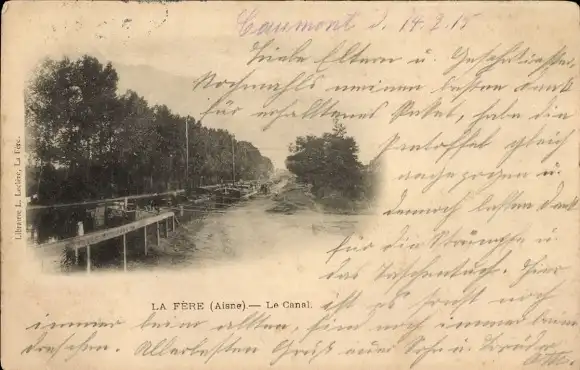 Caumont d. 14.2.15
Liebe Eltern u. Geschwister,
Nochmals meinen besten Dank
für erhaltenes Paket, habe die
Pantoffel gleich
angezogen u.
dennoch besten Dank
für die Strümpfe u.
das Taschentuch. Hier
ist es sonst noch
immer beim alten, sind noch immer beim
dreschen. Allerbesten Gruß euer Sohn u. Bruder
Otto.
Librairie L. Leclère, La Fère.
LA FÈRE (Aisne).— Le Canal.